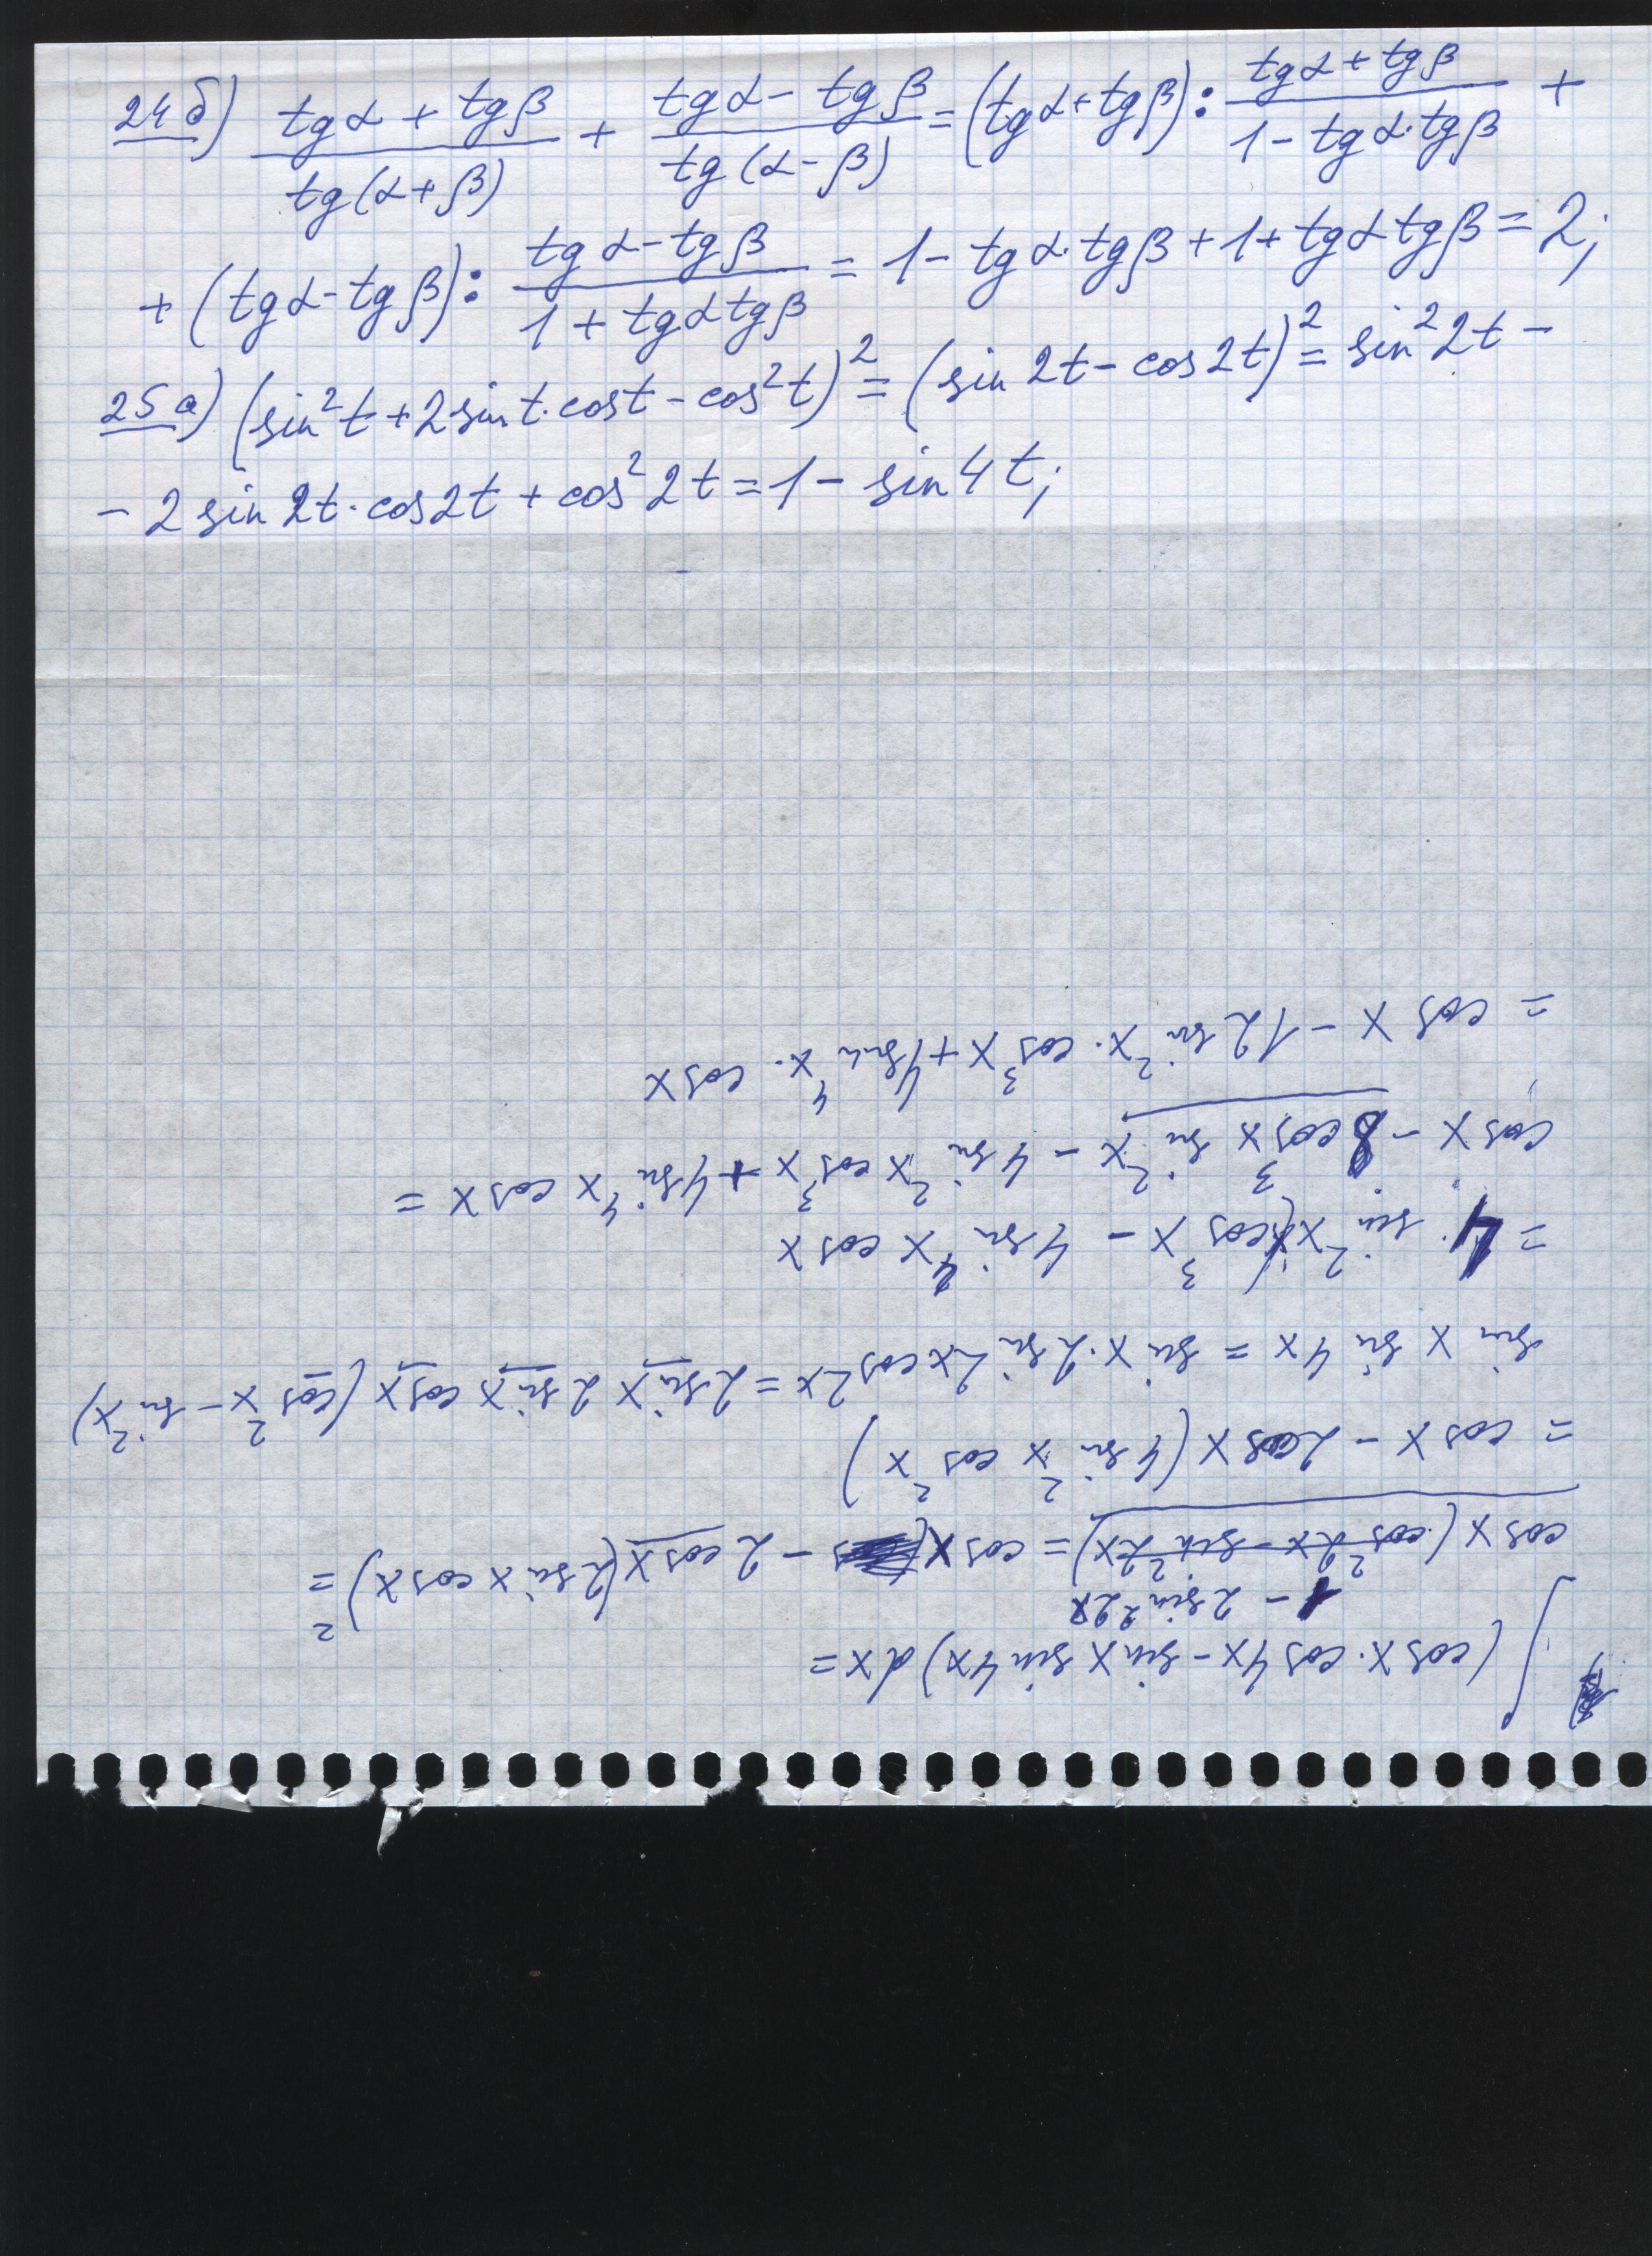 24 б) (tg α + tg β)/(tg(α + β)) + (tg α − tg β)/(tg(α − β)) = (tg α + tg β) : (tg α + tg β)/(1 − tg α · tg β) +
+ (tg α − tg β) : (tg α − tg β)/(1 + tg α tg β) = 1 − tg α · tg β + 1 + tg α tg β = 2;
25 а) (sin² t + 2 sin t · cos t − cos² t)² = (sin 2t − cos 2t)² = sin² 2t −
− 2 sin 2t · cos 2t + cos² 2t = 1 − sin 4t;
∫ (cos x · cos 4x − sin x sin 4x) dx =
1 − 2 sin² 2x
cos x (cos² 2x − sin² 2x) = cos x − 2 cos x (2 sin x cos x)² =
= cos x − 2 cos x (4 sin² x cos² x)
sin x sin 4x = sin x · 2 sin 2x cos 2x = 2 sin x 2 sin x cos x (cos² x − sin² x)
= 4 sin² x cos³ x − 4 sin⁴ x cos x
cos x − 8 cos³ x sin² x − 4 sin² x cos³ x + 4 sin⁴ x cos x =
= cos x − 12 sin² x · cos³ x + 4 sin⁴ x · cos x